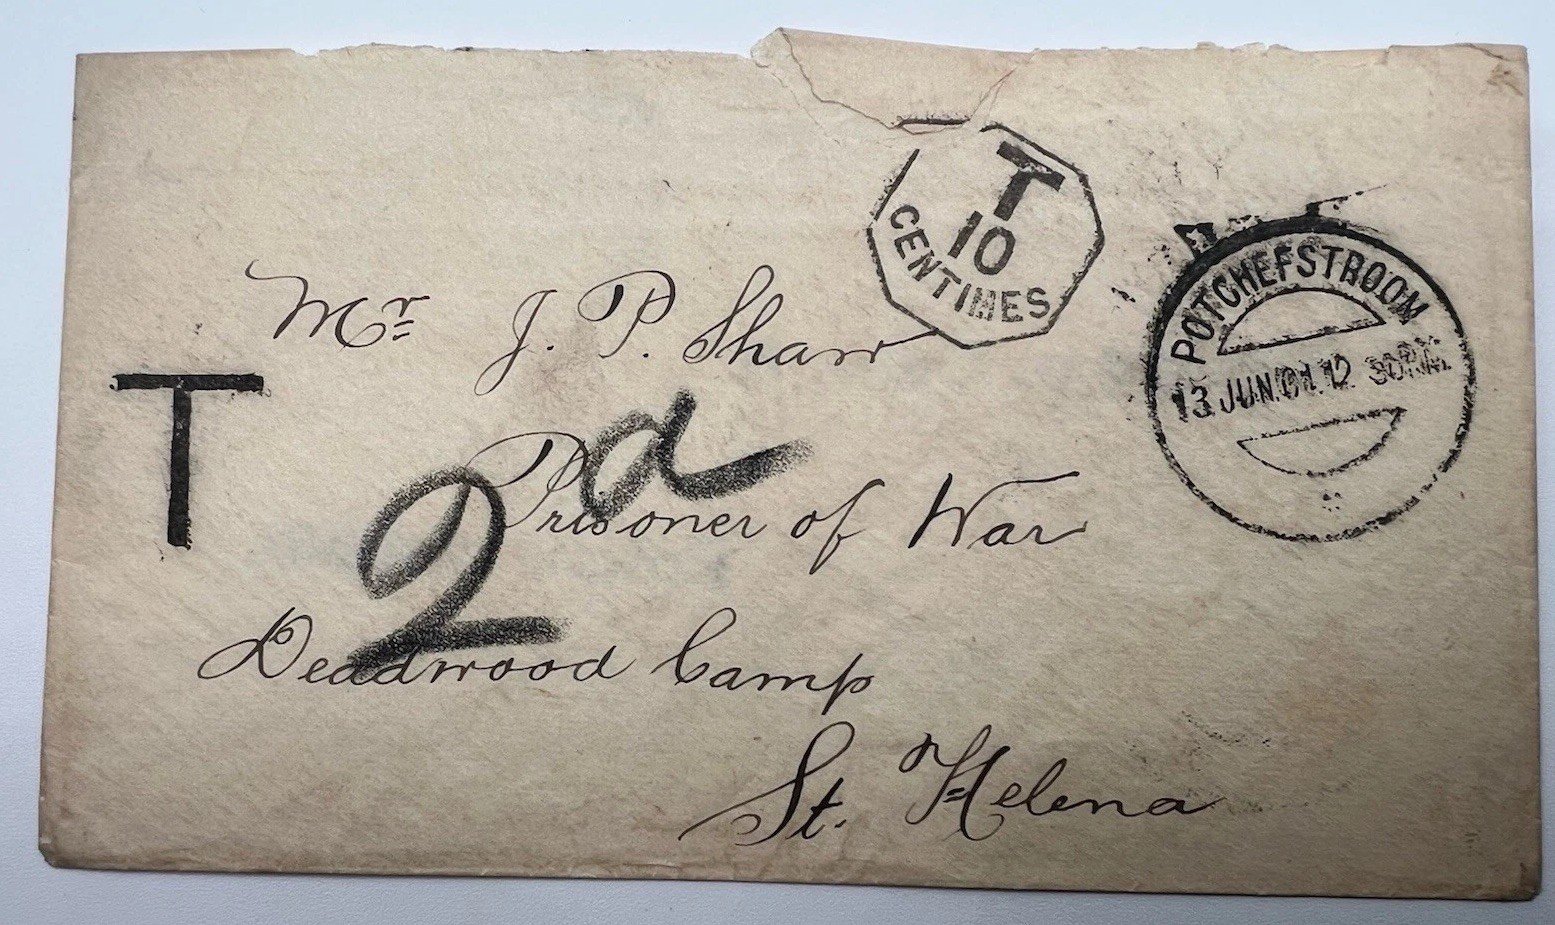 T
10
CENTIMES
POTCHEFSTROOM
13 JUN.01.12 30PM.
Mr J. P. Shaw
T
2d
Prisoner of War
Deadwood Camp
St. Helena